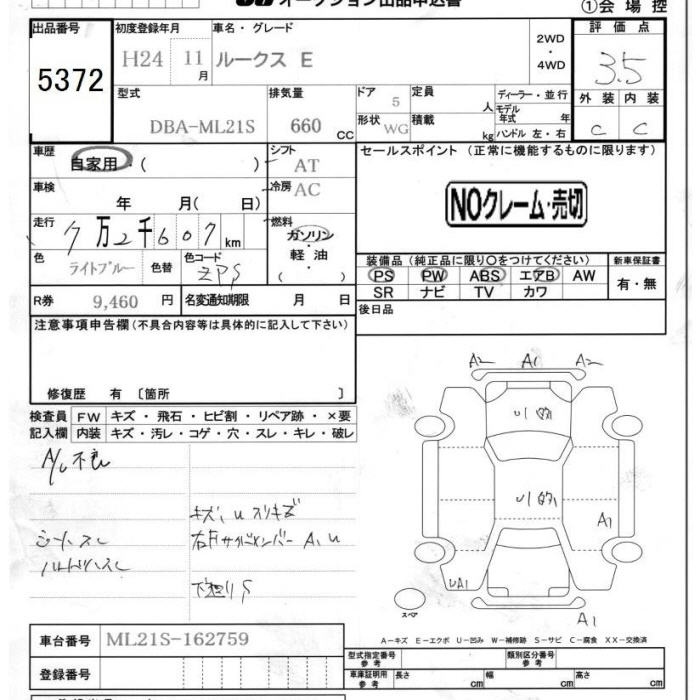 オークション出品申込書
①会場控
出品番号 初度登録年月 車名・グレード 2WD・4WD 評価点
5372 H24 11月 ルークス E 3.5
型式 排気量 ドア 定員 ディーラー・並行 外装 内装
DBA-ML21S 660 CC 5 人 モデル年式 年 C C
形状 WG 積載 kg ハンドル 左・右
車歴 自家用・( ) シフト AT セールスポイント (正常に機能するものに限ります)
車検 年 月( 日) 冷房 AC
NOクレーム・売切
走行 7万2千607km 燃料 ガソリン・軽油・( )
色 ライトブルー 色替 色コード ZPS
装備品 (純正品に限り○をつけてください) 新車保証書
PS PW ABS エアB AW 有・無
SR ナビ TV カワ
R券 9,460 円 名変通知期限 月 日
後日品
注意事項申告欄(不具合内容等は具体的に記入して下さい)
修復歴 有 〔箇所 〕
検査員 FW キズ・飛石・ヒビ割・リペア跡・×要
記入欄 内装 キズ・汚レ・コゲ・穴・スレ・キレ・破レ
A/C不良
キズ、U スリキズ
シートスレ
右Fサイドメンバー A、U
ハンドルスレ
下廻りS
A2 A1 A2
A1
UA1
A1
スペア
A-キズ E-エクボ U-凹み W-補修跡 S-サビ C-腐食 XX-交換済
車台番号 ML21S-162759
型式指定番号 参考 類別区分番号 参考
登録番号
車庫証明用 参考 長さ cm 幅 cm 高さ cm